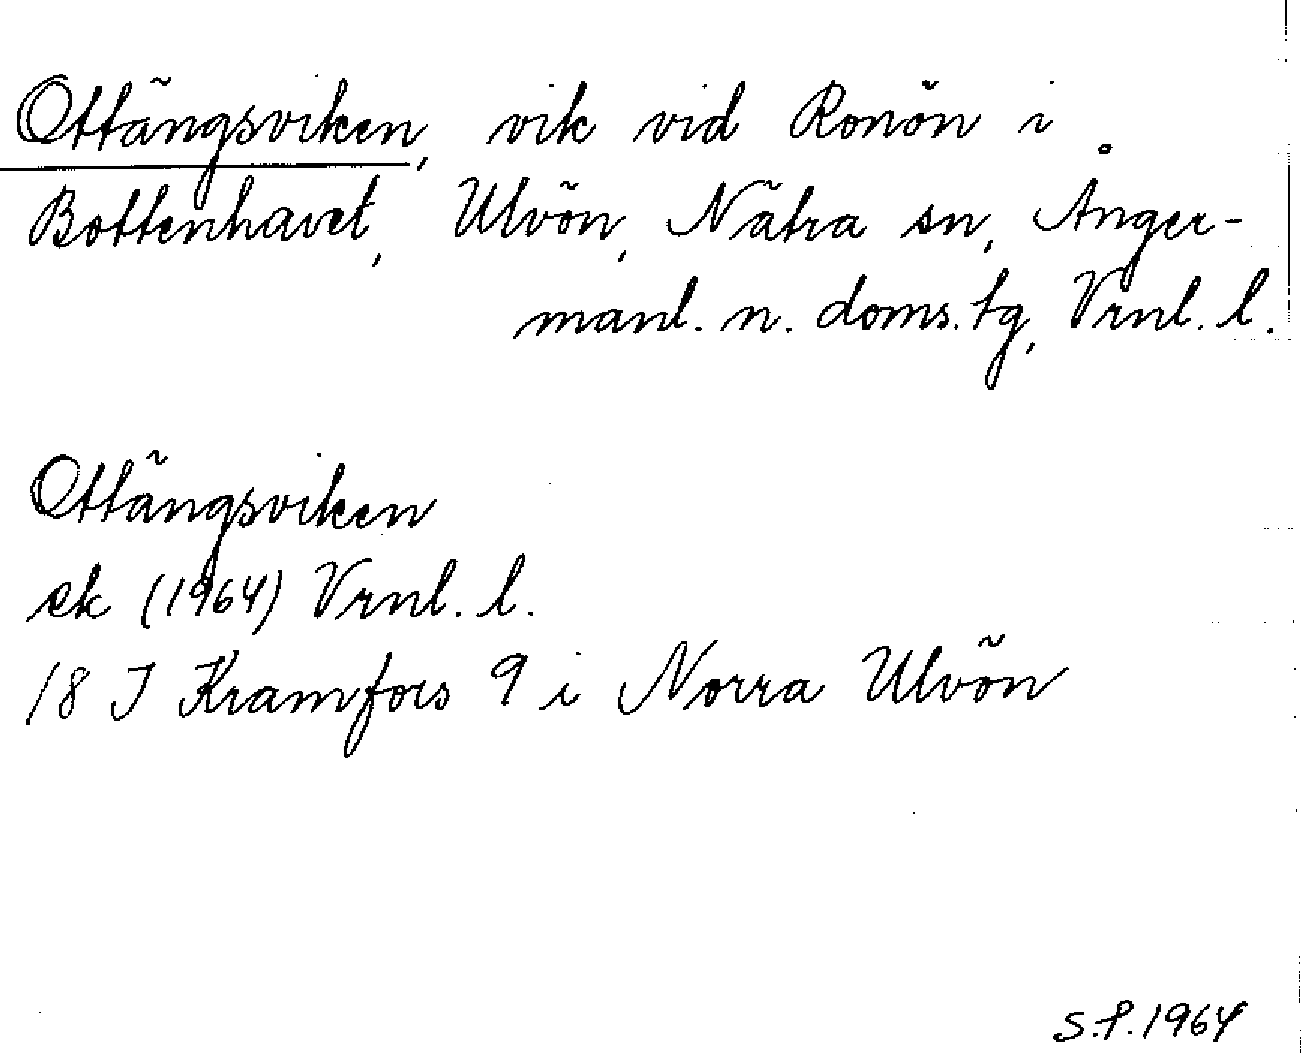 Ottängsviken, vik vid Ronön i
Bottenhavet, Ulvön, Nätra sn, Ånger-
manl. n. doms. tg, Vrnl. l.
Ottängsviken
ek (1964) Vrnl. l.
18 I Kramfors 9 i Norra Ulvön
S.P. 1964